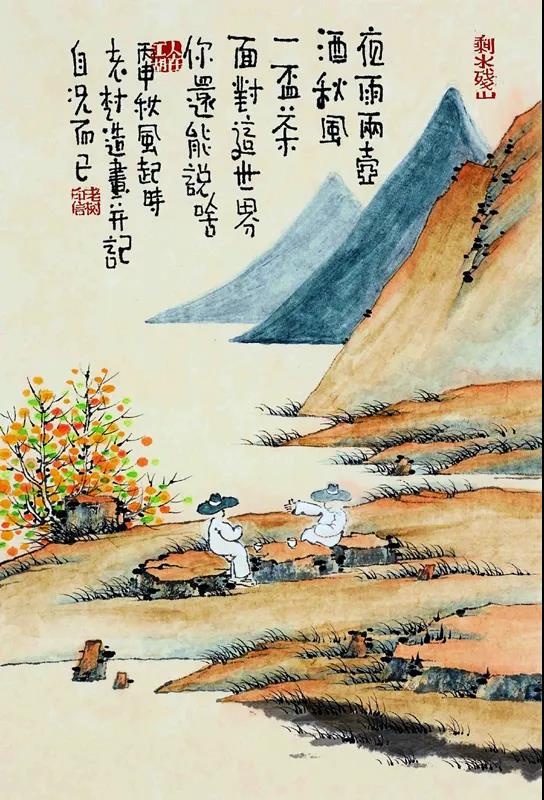 剩水殘山
夜雨兩壺
酒秋風
一盃茶
面對這世界
你還能說啥
人在江湖
丙申秋風起時
老树造畫并記
自況而已
老树印信